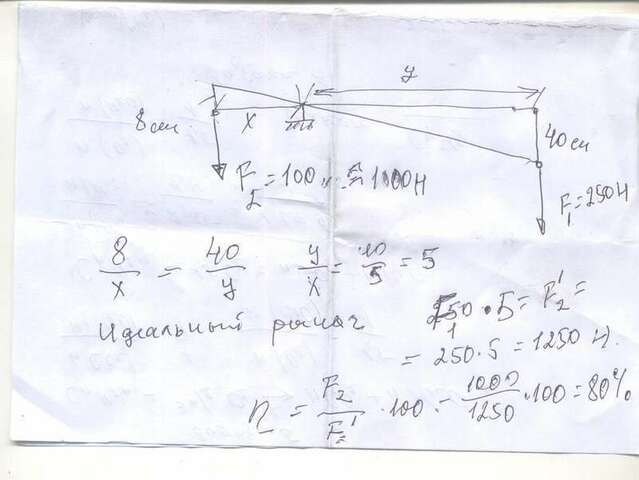 y
8 см
x
40 см
F₂ = 100 = 1000 Н
F₁ = 250 Н
8/x = 40/y y/x = 40/5 = 5
250 · 5 = F₂' =
Идеальный рычаг
= 250 · 5 = 1250 Н.
η = F₂/F₂' · 100 = 1000/1250 · 100 = 80%